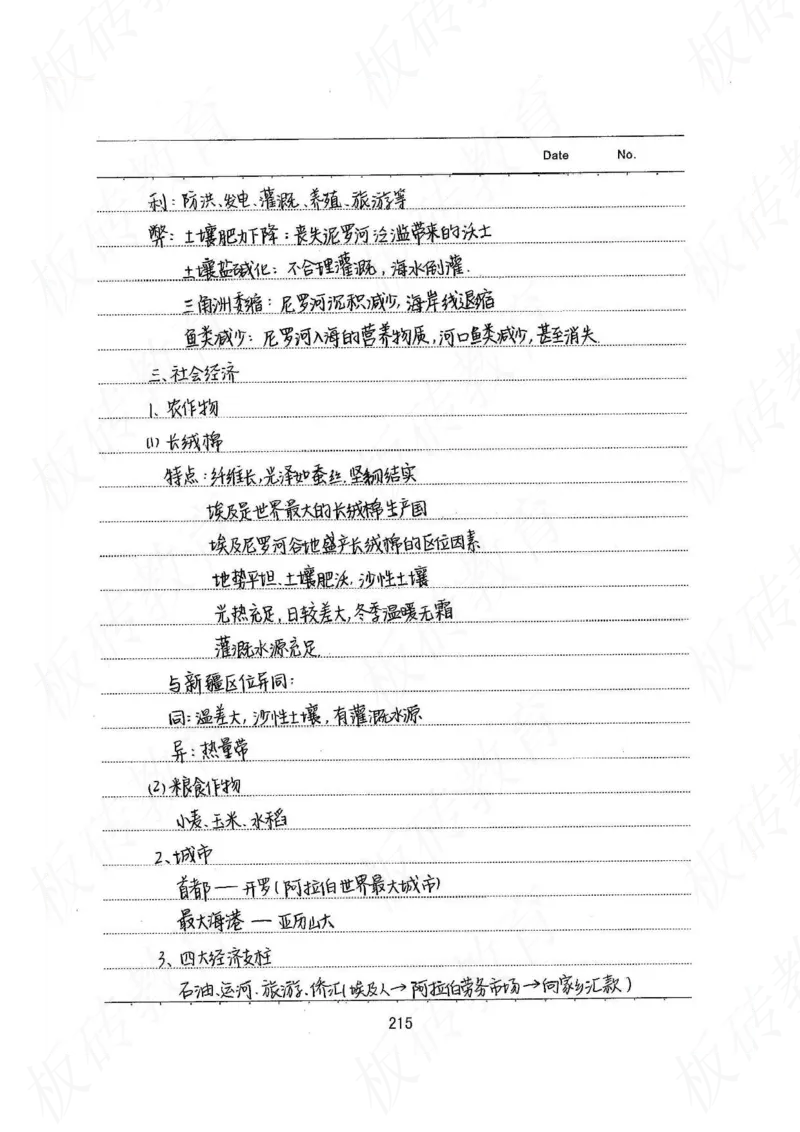 Date No.
利：防洪、发电、灌溉、养殖、旅游等
弊：土壤肥力下降：丧失尼罗河泛滥带来的沃土
土壤盐碱化：不合理灌溉，海水倒灌.
三角洲萎缩：尼罗河沉积减少，海岸线退缩
鱼类减少：尼罗河入海的营养物质，河口鱼类减少，甚至消失.
三、社会经济
1、农作物
(1) 长绒棉
特点：纤维长，光泽如蚕丝.坚韧结实
埃及是世界最大的长绒棉生产国
埃及尼罗河谷地盛产长绒棉的区位因素
地势平坦、土壤肥沃，沙性土壤
光热充足，日较差大，冬季温暖无霜
灌溉水源充足
与新疆区位异同：
同：温差大，沙性土壤，有灌溉水源
异：热量带
(2) 粮食作物
小麦、玉米、水稻
2、城市
首都—开罗(阿拉伯世界最大城市)
最大海港—亚历山大
3、四大经济支柱
石油、运河、旅游、侨汇(埃及人→阿拉伯劳务市场→向家乡汇款)
215
板砖教育